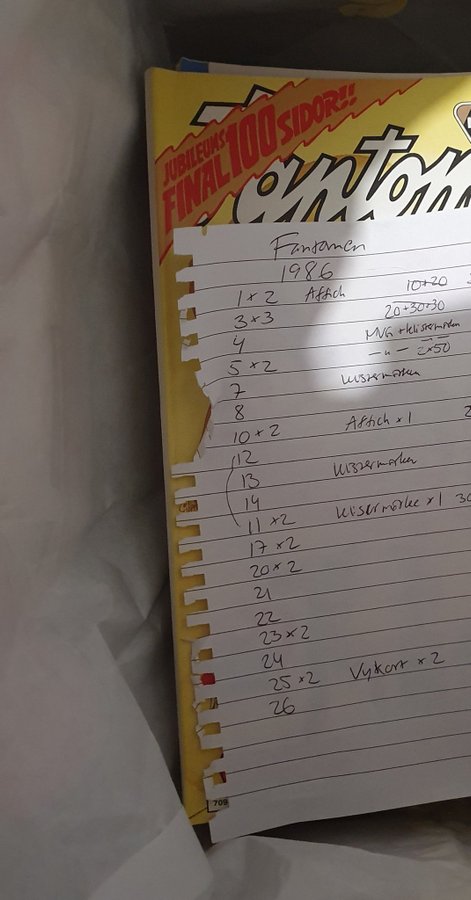 JUBILEUMS
FINAL 100 SIDOR!!
antom
Fantomen
1986
1 x 2 Affich 10+20
3 x 3 20+30+30
4 MVG + klistermärken
5 x 2 — " — 2x50
7 klistermärken
8
10 x 2 Affich x 1 2
12
13 klistermärken
14
11 x 2 klistermärke x 1 30
17 x 2
20 x 2
21
22
23 x 2
24
25 x 2 Vykort x 2
26
709